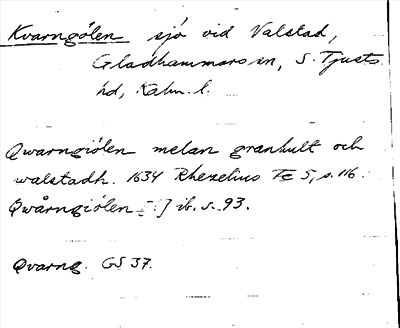 Kvarngölen sjö vid Valstad,
Gladhammars sn, S. Tjusts
hd, Kalm. l.
Qwarngiölen melan granhult och
walstadh. 1634 Rhezelius Fc 5, s. 116.
Qwårngiölen [:] ib. s. 93.
Qvarng. GS 37.